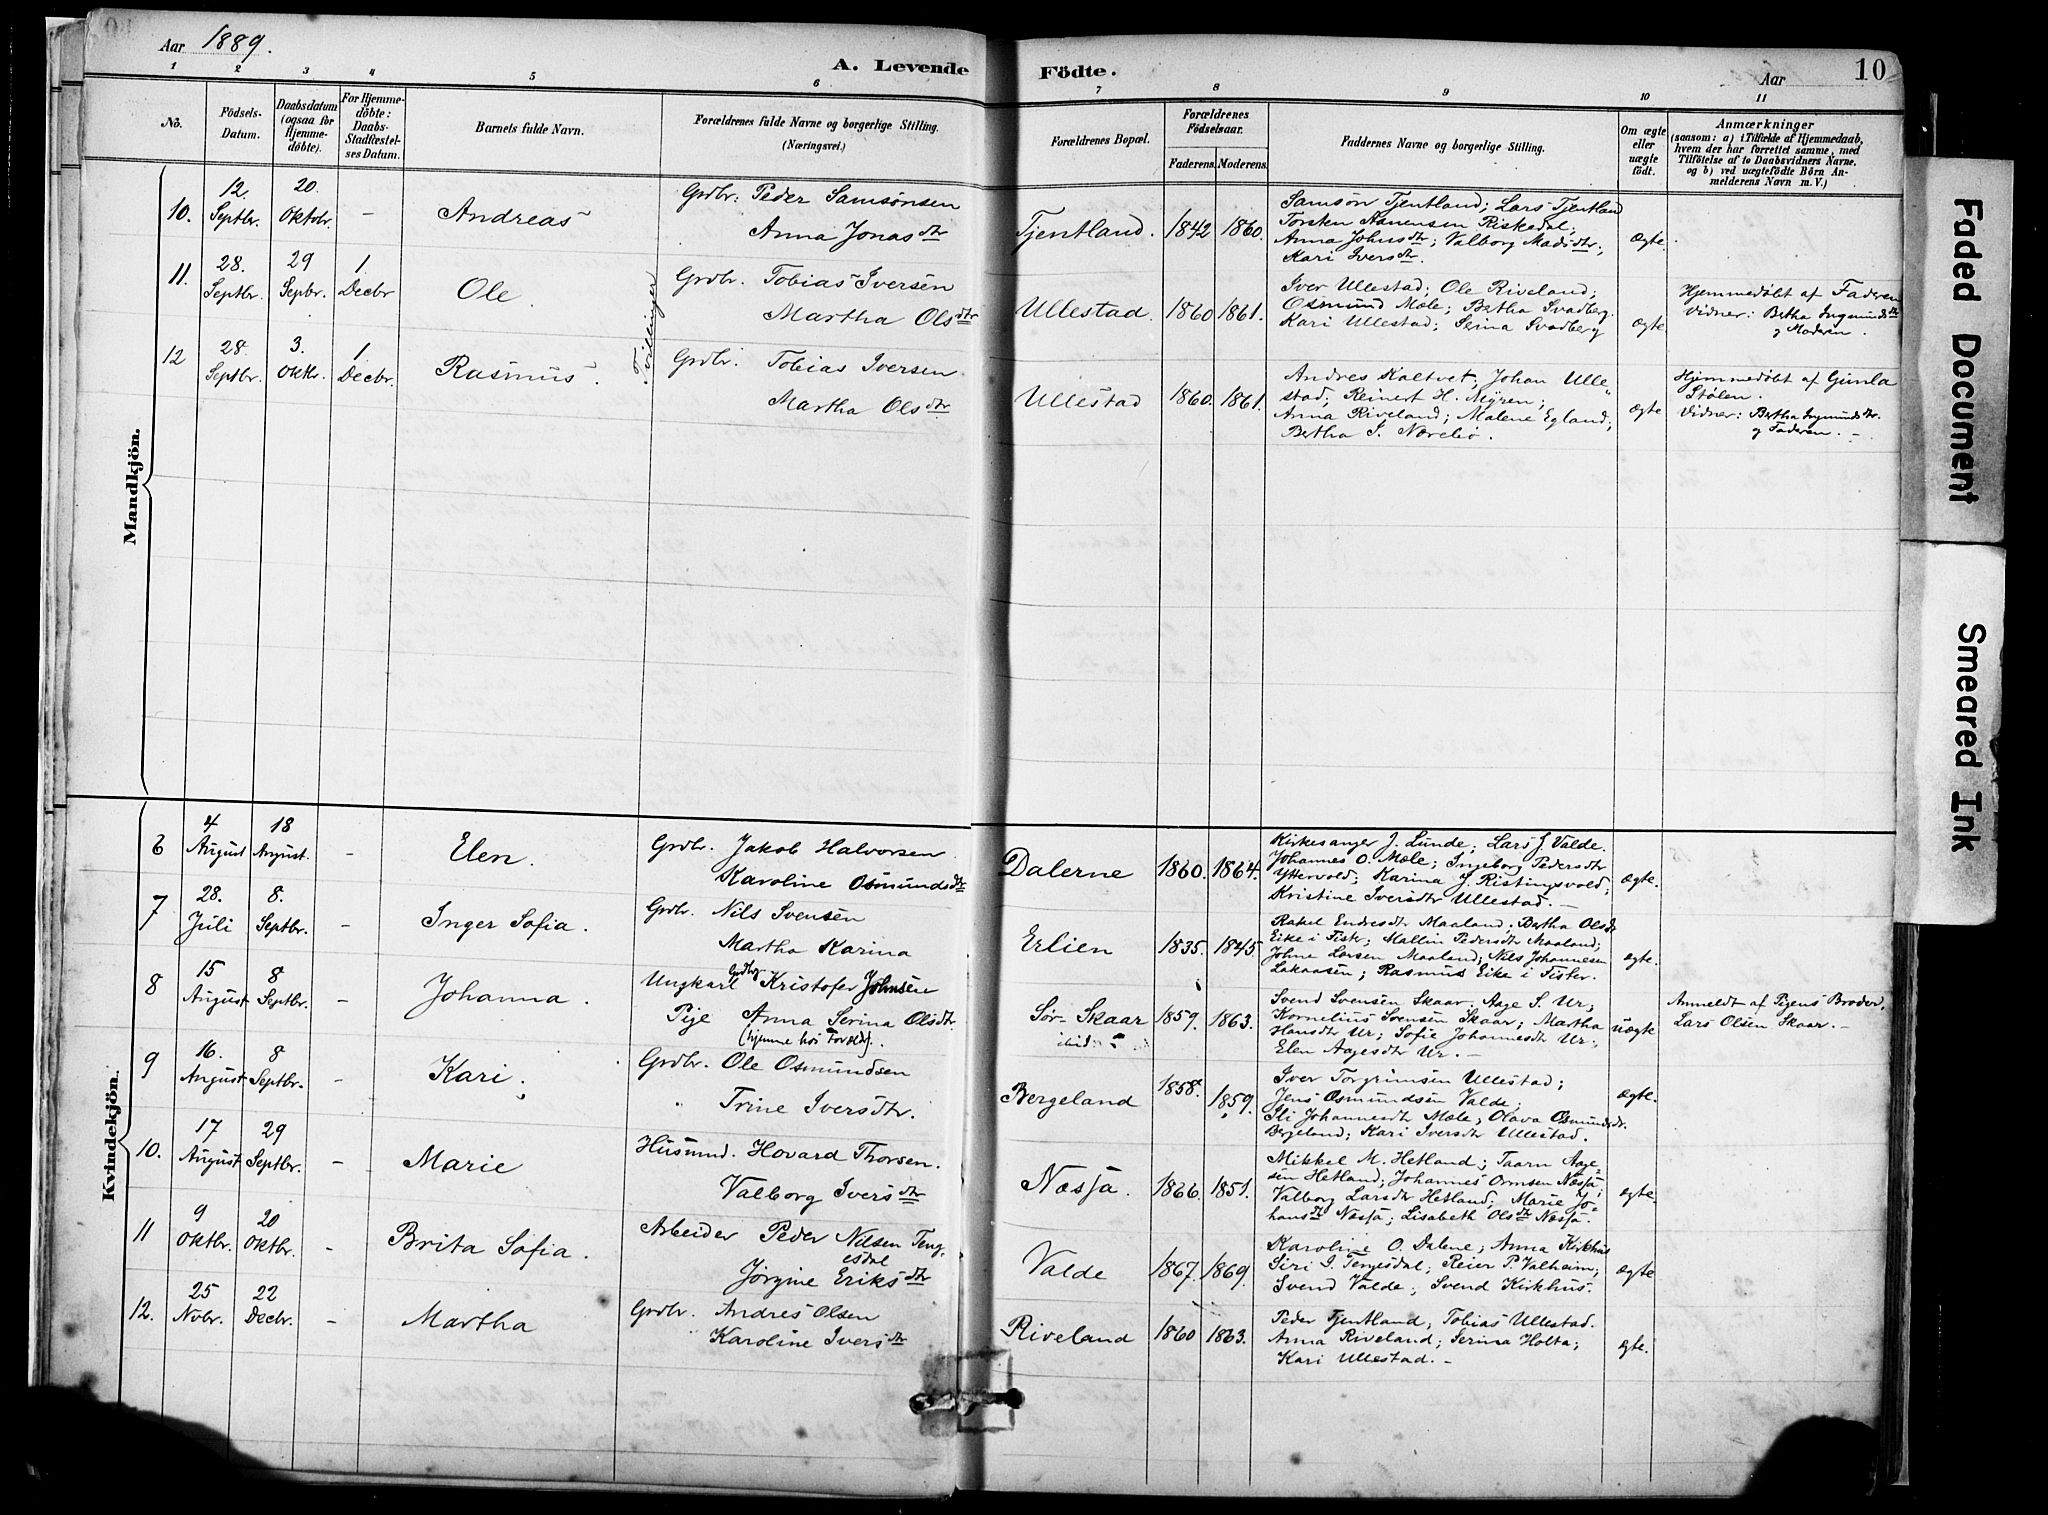 Aar 1889.
A. Levende Födte.
Aar
10
1 2 3 4 5 6 7 8 9 10 11
No.
Födsels-Datum.
Daabsdatum (ogsaa for Hjemme-döbte).
For Hjemme-döbte: Daabs-Stadfæstel-ses Datum.
Barnets fulde Navn.
Forældrenes fulde Navne og borgerlige Stilling. (Næringsvei.)
Forældrenes Bopæl.
Forældrenes Födselsaar.
Faderens. Moderens.
Faddernes Navne og borgerlige Stilling.
Om ægte eller uægte födt.
Anmærkninger
(saasom: a) i Tilfælde af Hjemmedaab,
hvem der har forrettet samme, med
Tilföielse af to Daabsvidners Navne,
og b) ved uægtefödte Börn An-
melderens Navn m. V.)
Mandkjön.
10. 12. Septbr. 20. Oktobr. - Andreas
Grdbr. Peder Samsönsen
Anna Jonasdtr
Tjentland. 1842 1860.
Samsön Tjentland; Lars Tjentland
Torsten Aanensen Riskedal;
Anna Johnsdtr; Valborg Madsdtr;
Kari Iversdtr.
ægte.
11. 28. Septbr. 29 Sepbr. 1. Decbr Ole.
Tvillinger
Grdbr. Tobias Iversen
Martha Olsdtr
Ullestad. 1860 1861.
Iver Ullestad; Ole Riveland;
Osmund Mæle; Bertha Svadberg.
Kari Ullestad; Serina Svadberg
ægte
Hjemmedøbt af Faderen
Vidner: Bertha Ingmundsdtr
og Moderen.
12 28 Septbr. 3. Oktbr. 1 Decbr. Rasmus.
Grdbr. Tobias Iversen
Martha Olsdtr
Ullestad 1860. 1861.
Andres Kaltvet; Johan Ulle-
stad; Reinert H. Myren;
Anna Riveland; Malene Egland;
Bertha I. Nærebø.
ægte
Hjemmedøbt af Gunla
Stølen.
Vidner: Bertha Ingmundsdtr.
og Faderen. -
Kvindekjön.
6 4 August 18 August. - Elen.
Grdbr. Jakob Halvorsen
Karoline Osmundsdtr
Dalerne 1860. 1864.
Kirkesanger J. Lunde; Lars J. Valde.
Johannes O. Mæle; Ingeborg Pedersdtr
Yttervold; Karina J. Ristingsvold;
Kristine Iversdtr Ullestad. -
ægte.
7 28. Juli 8. Septbr. - Inger Sofia.
Grdbr. Nils Svensen
Martha Karina
Erlien 1835. 1845.
Rakel Endresdtr Maaland; Bertha Olsdtr
Eike i Fistr; Mallin Pedersdtr Maaland;
Johne Larsen Maaland; Nils Johannesen
Lakaasen; Rasmus Eike i Fister.
ægte.
8 15 August 8 Septbr. - Johanna.
Ungkarl Grdbr Kristofer Johnsen
Pige Anna Serina Olsdtr
(hjemme hos Foræld.).
Sør-Skaar
ibid.
1859. 1863.
Svend Svensen Skaar. Aage S. Ur;
Kornelius Svensen Skaar; Martha
Hansdtr Ur; Sofie Johannesdtr Ur;
Elen Aagesdtr Ur. -
uægte
Anmeldt af Pigens Broder,
Lars Olsen Skaar. -
9 16. August 8 Septbr. - Kari.
Grdbr. Ole Osmundsen
Trine Iversdtr.
Bergeland 1858. 1859.
Iver Torgrimsen Ullestad;
Jens Osmundsen Valde;
Sli Johannesdt Mæle; Olava Osmundsdtr.
Bergeland; Kari Iversdtr Ullestad.
ægte.
10. 17 August 29 Septbr. - Marie
Husmnd. Hovard Thorsen.
Valborg Iversdtr
Næsjå. 1866. 1851.
Mikkel M. Hetland; Taarn Aage-
sen Hetland; Johannes Ormsen Næsjå;
Valborg Larsdtr Hetland; Marie Jo-
hansdtr Næsjå; Lisabeth Olsdtr Næsjå.
ægte.
11 9 Oktbr. 20 Oktbr. - Brita Sofia.
Arbeider Peder Nilsen Teng-
esdal
Jørgine Eriksdtr
Valde 1867. 1869.
Karoline O. Dalene; Anna Kirkhus
Siri I. Tengesdal; Reier P. Valheim;
Svend Valde; Svend Kirkhus.
ægte
12. 25 Novbr. 22 Decbr. - Martha
Grdbr. Andres Olsen
Karoline Iversdtr
Riveland 1860 1863.
Peder Tjentland; Tobias Ullestad.
Anna Riveland; Serina Holta;
Kari Ullestad. -
ægte.
Faded Document
Smeared Ink